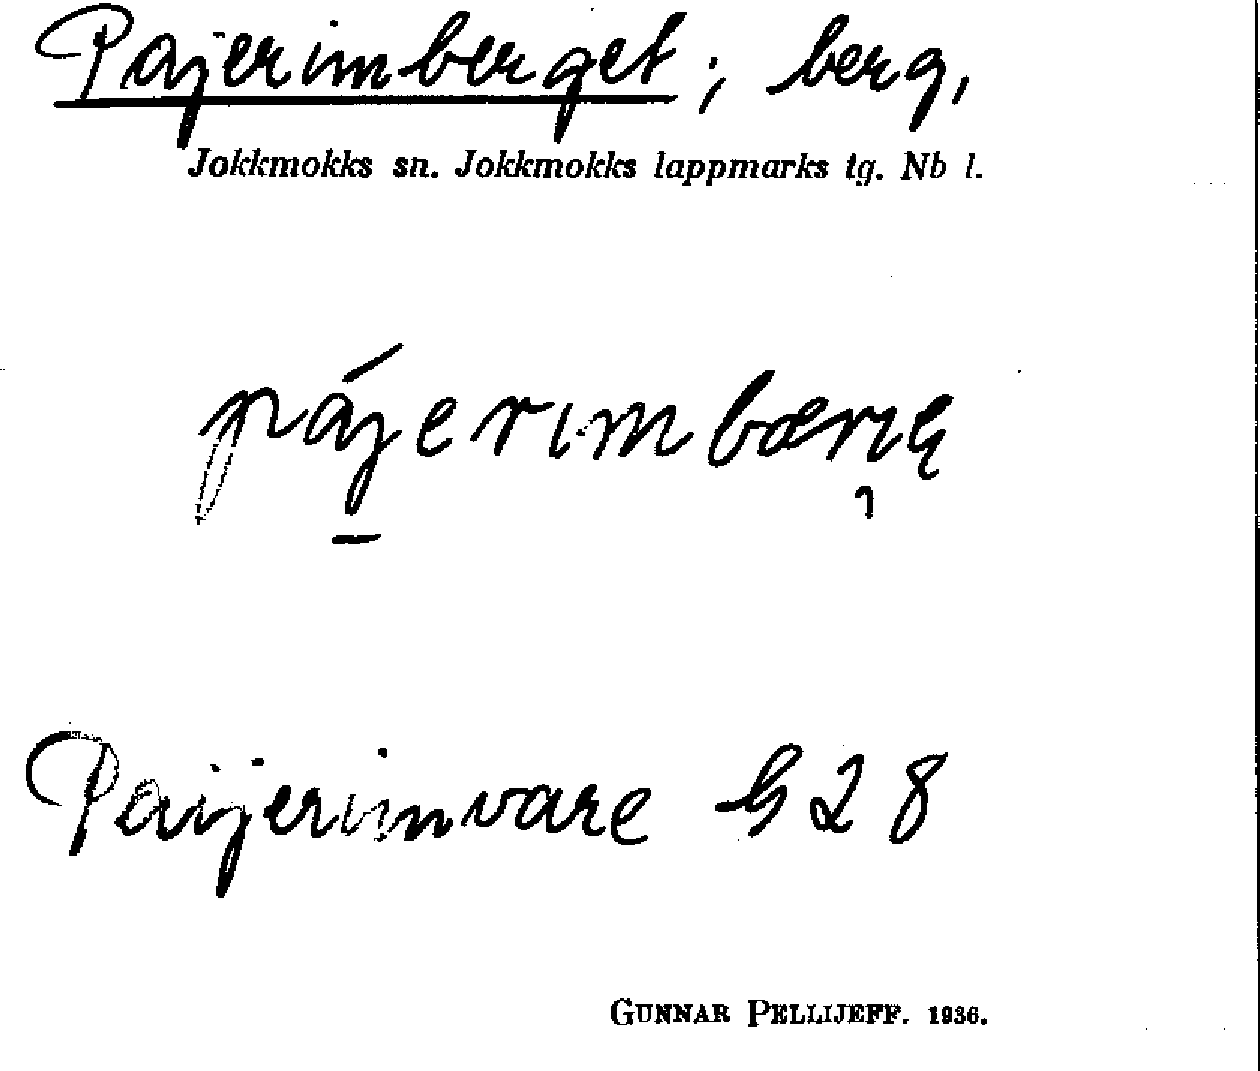 Pajerimberget; berg,
Jokkmokks sn. Jokkmokks lappmarks tg. Nb l.
pájerimbærı̨ę
Paijerimvare G 28
GUNNAR PELLIJEFF. 1936.